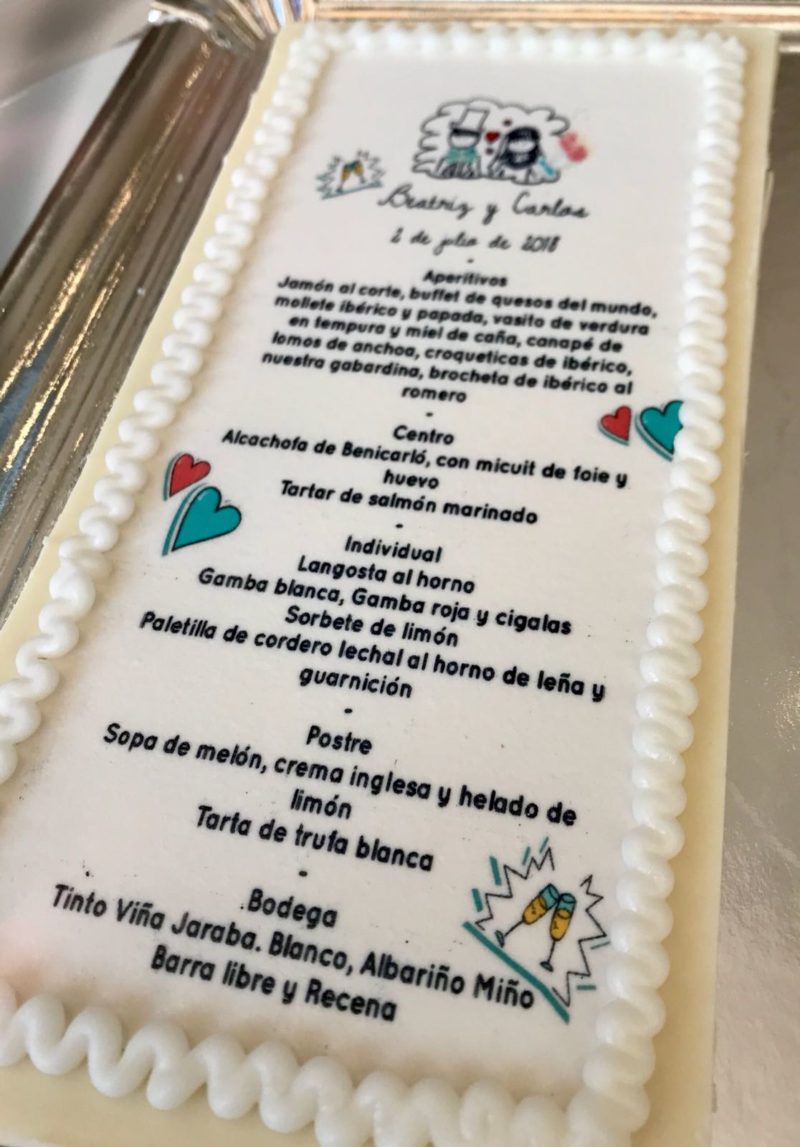 Beatriz y Carlos
2 de julio de 2018
-
Aperitivos
Jamón al corte, buffet de quesos del mundo,
mollete ibérico y papada, vasito de verdura
en tempura y miel de caña, canapé de
lomos de anchoa, croqueticas de ibérico,
nuestra gabardina, brocheta de ibérico al
romero
-
Centro
Alcachofa de Benicarló, con micuit de foie y
huevo
Tartar de salmón marinado
-
Individual
Langosta al horno
Gamba blanca, Gamba roja y cigalas
Sorbete de limón
Paletilla de cordero lechal al horno de leña y
guarnición
-
Postre
Sopa de melón, crema inglesa y helado de
limón
Tarta de trufa blanca
-
Bodega
Tinto Viña Jaraba. Blanco, Albariño Miño
Barra libre y Recena